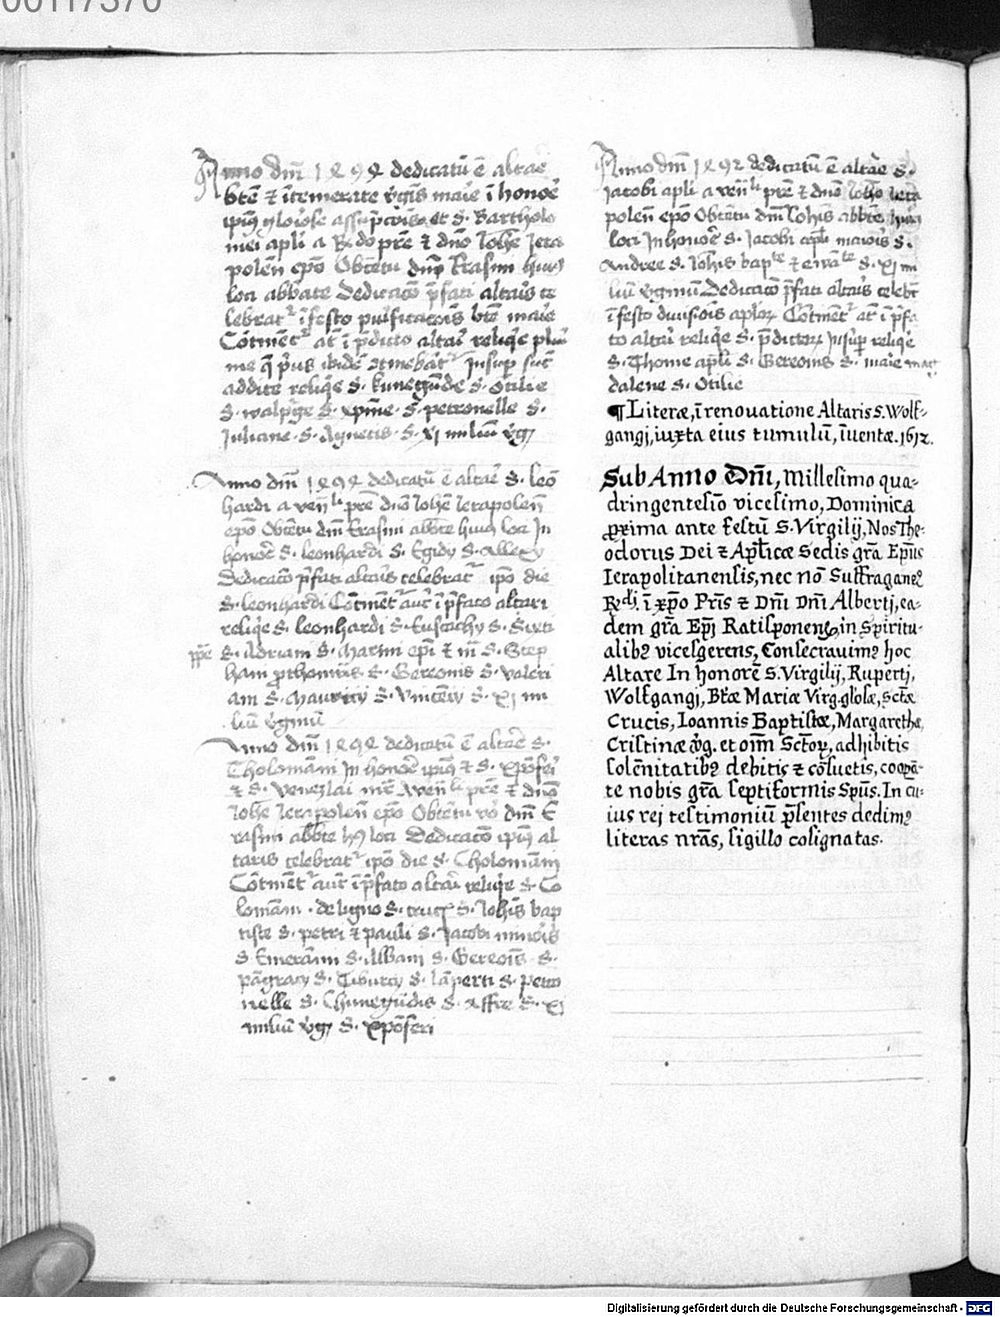 00117370
Anno dm̄ 1494 dedicatū ē altare
btē ⁊ ītemerate v̉gīs maīe ī honoē
ipīꝰ glōīose assūpc̄ōis et S. Bartholo
mei apli a R̄do prē ⁊ dn̄o Joh̄e Jera
polen̄ ep̄o Obtētu dn̄i Erasmi huiꝰ
loci abbate Dedicac̄o p̄fati altaīs ce
lebrat᷑ ī festo purificac̄ois btē maīe
Cōtinent᷑ āt ī p̄dicto altaī reliq̄e
me q̄ pꝰus ibidē Insup sūt
addite reliq̄e S. kunegūdē S. Otilie
S. walpurge S. xpīne S. petronelle S.
Juliane S. Agnetis S. xj milium v̉gī
Anno dm̄ 1494 dedicatū ē altaē S. leō
hardi a ven̄li prē dn̄o Joh̄e Jerapolen̄
ep̄o Obtētu dm̄ Erasmi abbte huiꝰ loci In
honoē S. leonhardi S. Egidy S. Allexy
Dedicac̄o p̄fati altaīs celebrat᷑ ip̄o die
S. leonhardi Cōtinent᷑ aut̄ ī p̄fato altari
reliq̄e S. leonhardi S. Eustachy S. Sixti
S. Adriani S. Marini ep̄i ⁊ m̄ S. Step
hani prothom̄is S. Gereonis S. valeri
ani S. Mauricy S. Vincēcy S. xj mi
liū v̉ginū
Anno dm̄ 1494 dedicatū ē altarē S.
Cholomāni In honoē ipīꝰ ⁊ S. xpōferi
⁊ S. Wenezlai a ven̄li prē ⁊ dn̄o
Joh̄e Jerapolen̄ ep̄o Obtētu dm̄ E
rasmi abbte hꝰ loci Dedicac̄o ipīꝰ al
taris celebrat᷑ ip̄o die S. Cholomāni
Cōtinent᷑ aut̄ ī p̄fato altaī reliq̄e S. Co
lomāni de ligno S. crucꝭ S. Joh̄is bap
tiste S. petri ⁊ pauli S. Jacobi minoīs
S. Emerāmi S. Albani S. Gereoīs S.
pāgracy S. Tiburcy S. lāperti S. petro
nelle S. Chunegūdis S. Affre S. xj
miliū v̉gī S. xpōferi
Anno dm̄ 1492 dedicatū ē altāe S.
Jacobi apli a ven̄li prē ⁊ dn̄o Joh̄e Jera
polen̄ ep̄o Obtētu dm̄ Joh̄is abbte huiꝰ
loci In honoē S. Jacobi apli maioīs S.
Andree S. Joh̄is bapte ⁊ ewāte S. xj mi
liū v̉ginū Dedicac̄o p̄fati altaīs celebt̄
ī festo diuisiōis aploꝝ Cōtinent᷑ āt ī p̄fa
to altaī reliq̄e S. p̄dictoꝝ Insup reliq̄e
S. Thome apli S. Gereonis S. maīe mag
dalene S. Otilie
¶ Literæ, ī renouatione Altaris S. Wolf⸗
gangj, iuxta eius tumulū, īuentæ. 1612.
Sub Anno Dn̄i, Millesimo qua⸗
dringentesīo vicesimo, Dominica
ꝓxima ante festū S. Virgilij, Nos The⸗
odorus Dei ⁊ Ap̄licæ Sedis gr̄a Ep̄us
Ierapolitanensis, nec nō Suffraganeꝰ
R.di, ī xp̄o Pr̄is ⁊ Dn̄i Dn̄i Albertj, ea⸗
dem gr̄a Ep̄j Ratisponenꝭ, in Spiritu⸗
alibꝰ vicesgerens, Consecrauimꝰ hoc
Altare In honorē S. Virgilij, Ruperti,
Wolfgangj, Bt̄æ Mariæ Virg. gl̄osæ, Sct̄æ
Crucis, Ioannis Baptistæ, Margarethæ,
Cristinæ v̉g. et oīm Sct̄oꝝ, adhibitis
solēnitatibꝰ debitis ⁊ cōsuetis, coopā⸗
te nobis gr̄a septiformis Sp̄us. In cu⸗
ius rej testimoniū p̄sentes dedimꝰ
literas nr̄as, sigillo cōsignatas.
Digitalisierung gefördert durch die Deutsche Forschungsgemeinschaft - DFG